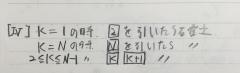 [IV] K=1の時 2を引いたら富士
K=Nの時 Nを引いたら 〃
2≦K≦N-1 〃 K K+1 〃